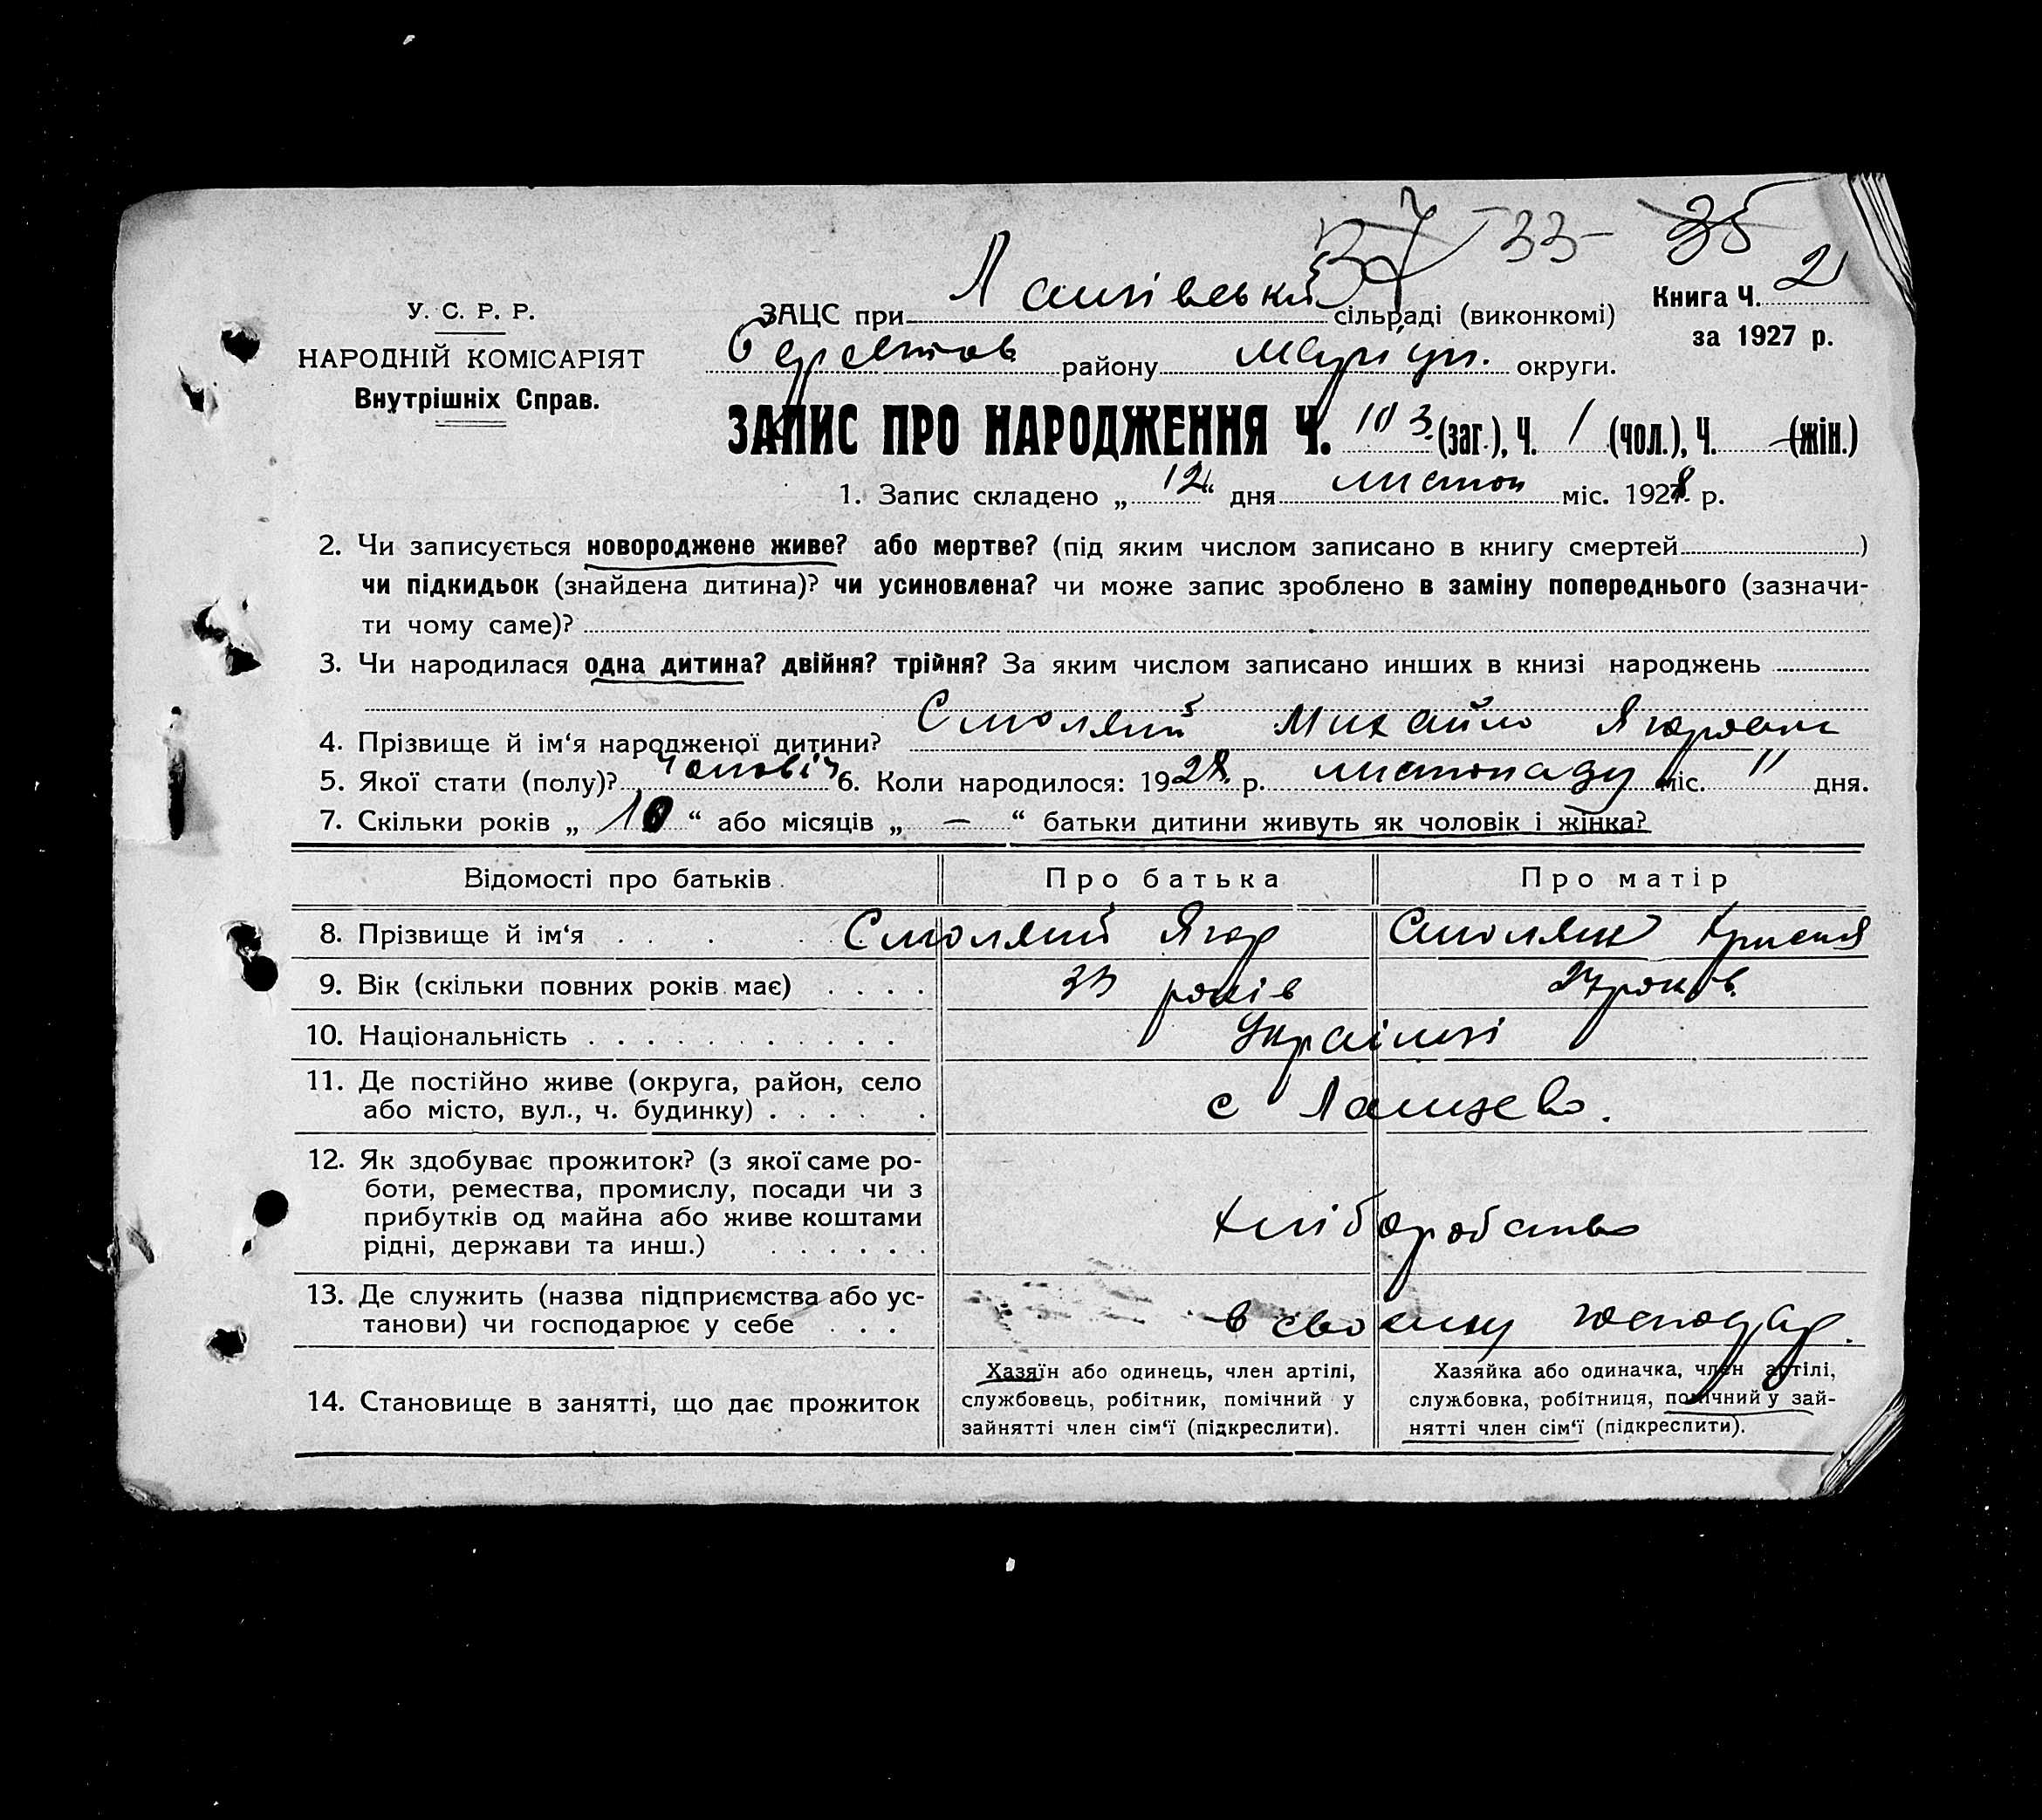 37 33- 35
У. С. Р. Р.
НАРОДНІЙ КОМІСАРІЯТ
Внутрішніх Справ.
ЗАЦС при сільраді (виконкомі)
району Маріуп. округи.
Книга Ч. 2
за 1927 р.
ЗАПИС ПРО НАРОДЖЕННЯ Ч. 103 (заг.), Ч. 1 (чол.), Ч. - (жін.)
1. Запис складено „ 12 “ дня листоп міс. 1928 р.
2. Чи записується новороджене живе? або мертве? (під яким числом записано в книгу смертей )
чи підкидьок (знайдена дитина)? чи усиновлена? чи може запис зроблено в заміну попереднього (зазначи-
ти чому саме)?
3. Чи народилася одна дитина? двійня? трійня? За яким числом записано инших в книзі народжень
4. Прізвище й ім‘я народженої дитини? Смоляний Михайло
5. Якої стати (полу)? чоловіч 6. Коли народилося: 1928 р. листопаду міс. 11 дня.
7. Скільки років „ 10 “ або місяців „ — “ батьки дитини живуть як чоловік і жінка?
Відомості про батьків. Про батька Про матір
8. Прізвище й ім‘я . . . . Смоляний Ягор
9. Вік (скільки повних років має) . . . . 33 років 27 років.
10. Національність . . . . . . . . . . . Українці
11. Де постійно живе (округа, район, село
або місто, вул., ч. будинку) . . . . . с
12. Як здобуває прожиток? (з якої саме ро-
боти, ремества, промислу, посади чи з
прибутків од майна або живе коштами
рідні, держави та инш.) . . . . . . хліборобство
13. Де служить (назва підприємства або ус-
танови) чи господарює у себе . . . в своєму господар.
14. Становище в занятті, що дає прожиток
Хазяїн або одинець, член артілі,
службовець, робітник, помічний у
зайнятті член сім‘ї (підкреслити).
Хазяйка або одиначка, член артілі,
службовка, робітниця, помічний у зай-
нятті член сім‘ї (підкреслити).